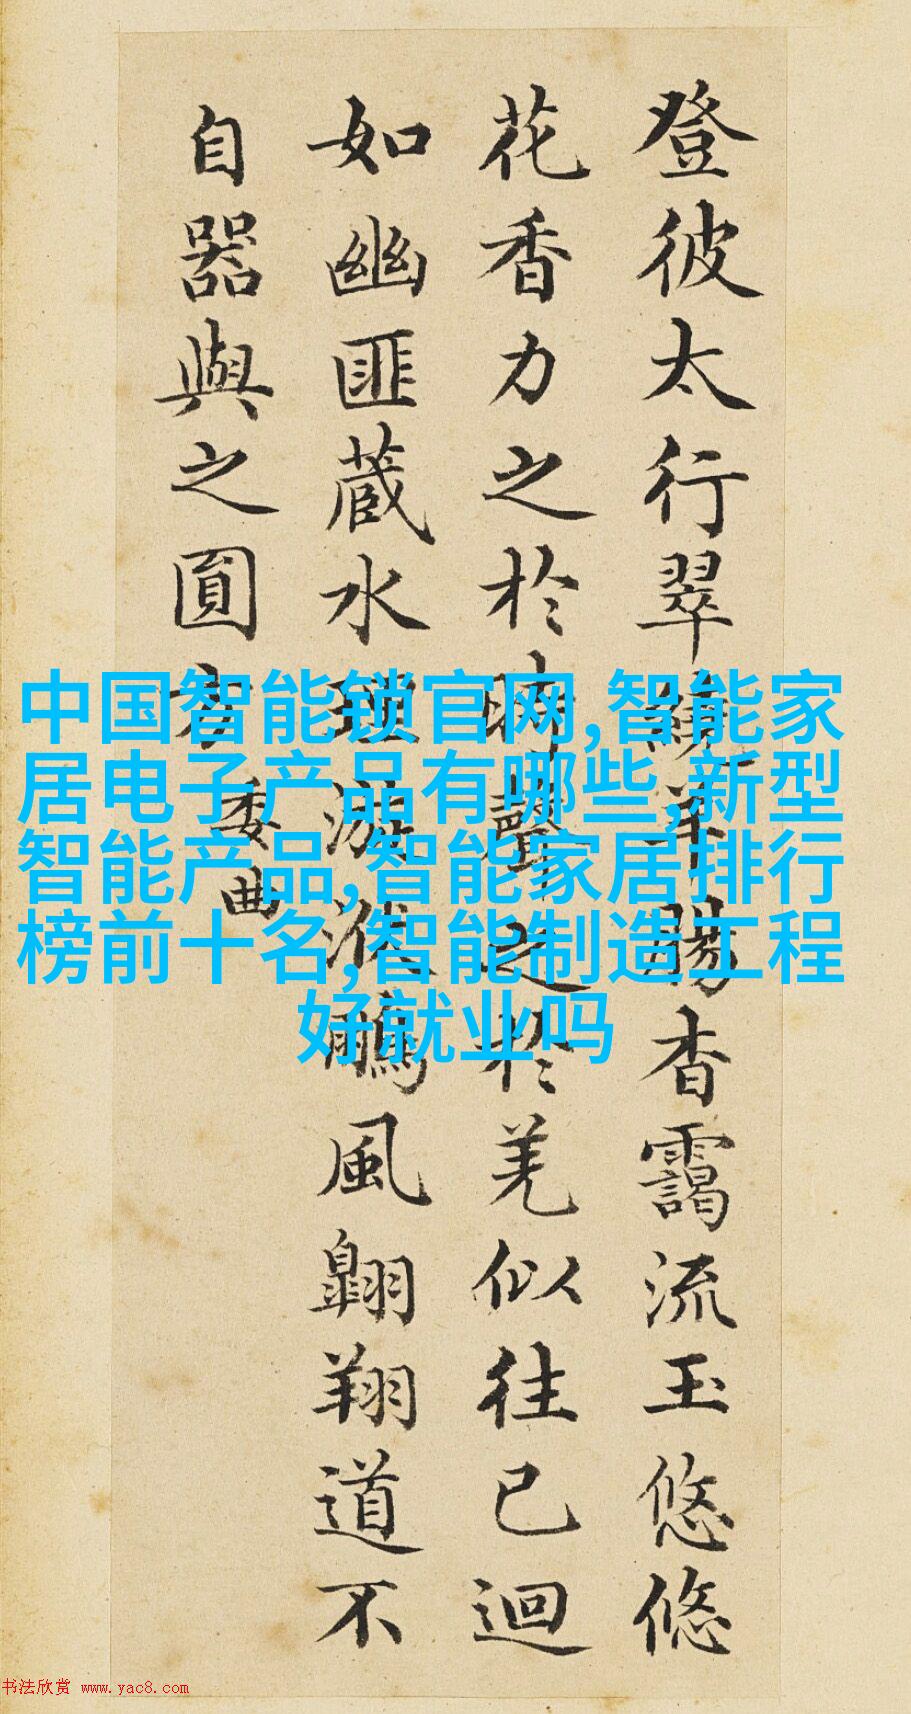 登彼太行翠繞羊腸杳靄流玉悠悠
花香力之於時聲之於羌似往已迴
如幽匪蔵水理漩洑鵬風翺翔道不
自器與之圓方
委曲
中国智能锁官网,智能家
居电子产品有哪些,新型
智能产品,智能家居排行
榜前十名,智能制造工程
好就业吗
书法欣赏 www.yac8.com